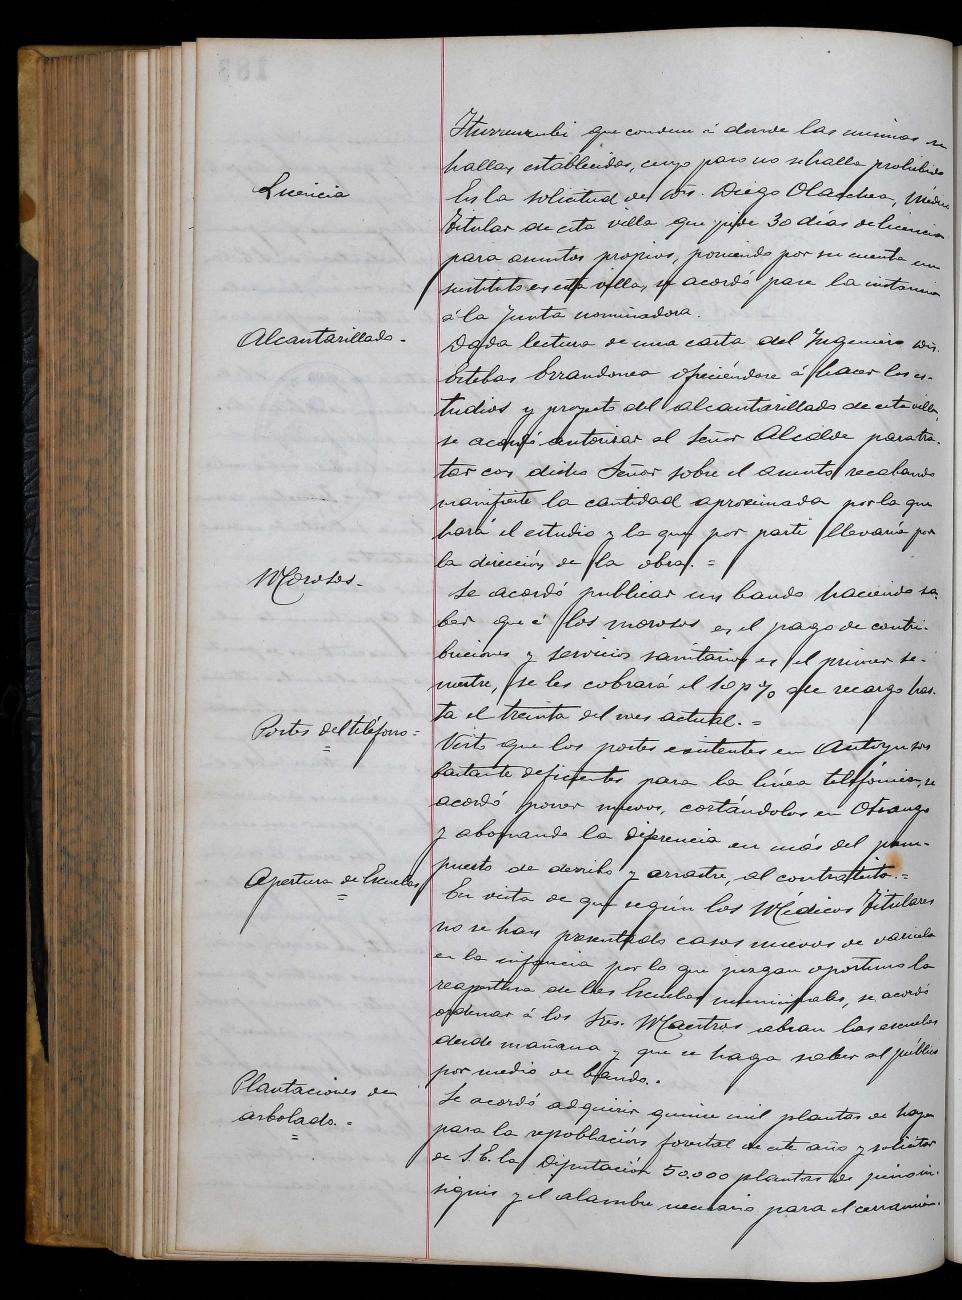 Iturrurubi que conducen á donde las mismas se
hallan establecidas, cuyo paso no se halla prohibido
Licencia
En la solicitud de Dn. Diego Olaechea, Médico
Titular de esta villa que pide 30 días de licencia
para asuntos propios, poniendo por su cuenta un
sustituto en esta villa, se acordó pase la instancia
á la Junta nominadora.
Alcantarillado.-
Dada lectura de una carta del Ingeniero Dn.
Esteban Errandonea ofreciéndose á hacer los es-
tudios y proyecto del alcantarillado de esta villa,
se acordó autorizar al Señor Alcalde para tra-
tar con dicho Señor sobre el asunto recabando
manifieste la cantidad aproximada por la que
hará el estudio y la que por parte llevaría por
la dirección de la obra.=
Morosos.-
Se acordó publicar un bando haciendo sa-
ber que á los morosos en el pago de contri-
buciones y servicios sanitarios en el primer se-
mestre, se les cobrará el 10 p% de recargo has-
ta el treinta del mes actual.=
Postes del teléfono=
Visto que los postes existentes en son
bastante deficientes para la línea telefónica, se
acordó poner nuevos, cortándolos en
y abonando la diferencia en más del presu-
puesto de derribo y arrastre, al contratista.=
Apertura de Escuelas
En vista de que según los Médicos Titulares
no se han presentado casos nuevos de viruela
en la infancia por lo que juzgan oportuno la
reapertura de las Escuelas municipales, se acordó
ordenar á los Sres. Maestros abran las escuelas
desde mañana y que se haga saber al público
por medio de bando.
Plantaciones de
arbolado.=
Se acordó adquirir quince mil plantas de haya
para la repoblación forestal de este año y solicitar
de S.E. la Diputación 50.000 plantas de pino in-
signis y el alambre necesario para el cerramien-